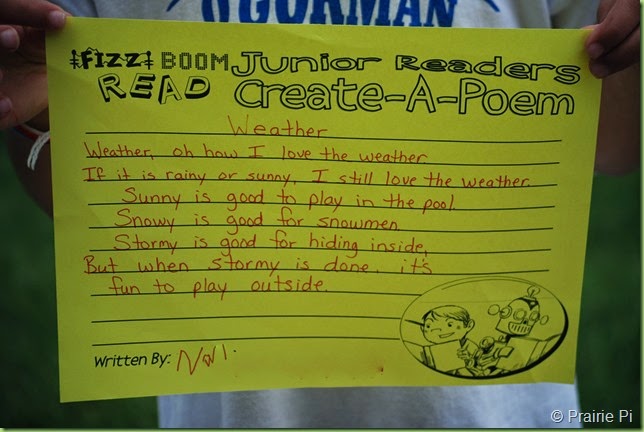 O'GORMAN
FIZZ BOOM READ
Junior Readers
Create-A-Poem
Weather
Weather, oh how I love the weather
If it is rainy or sunny, I still love the weather.
Sunny is good to play in the pool.
Snowy is good for snowmen.
Stormy is good for hiding inside,
But when stormy is done, it's
fun to play outside.
Written By:
© Prairie Pi